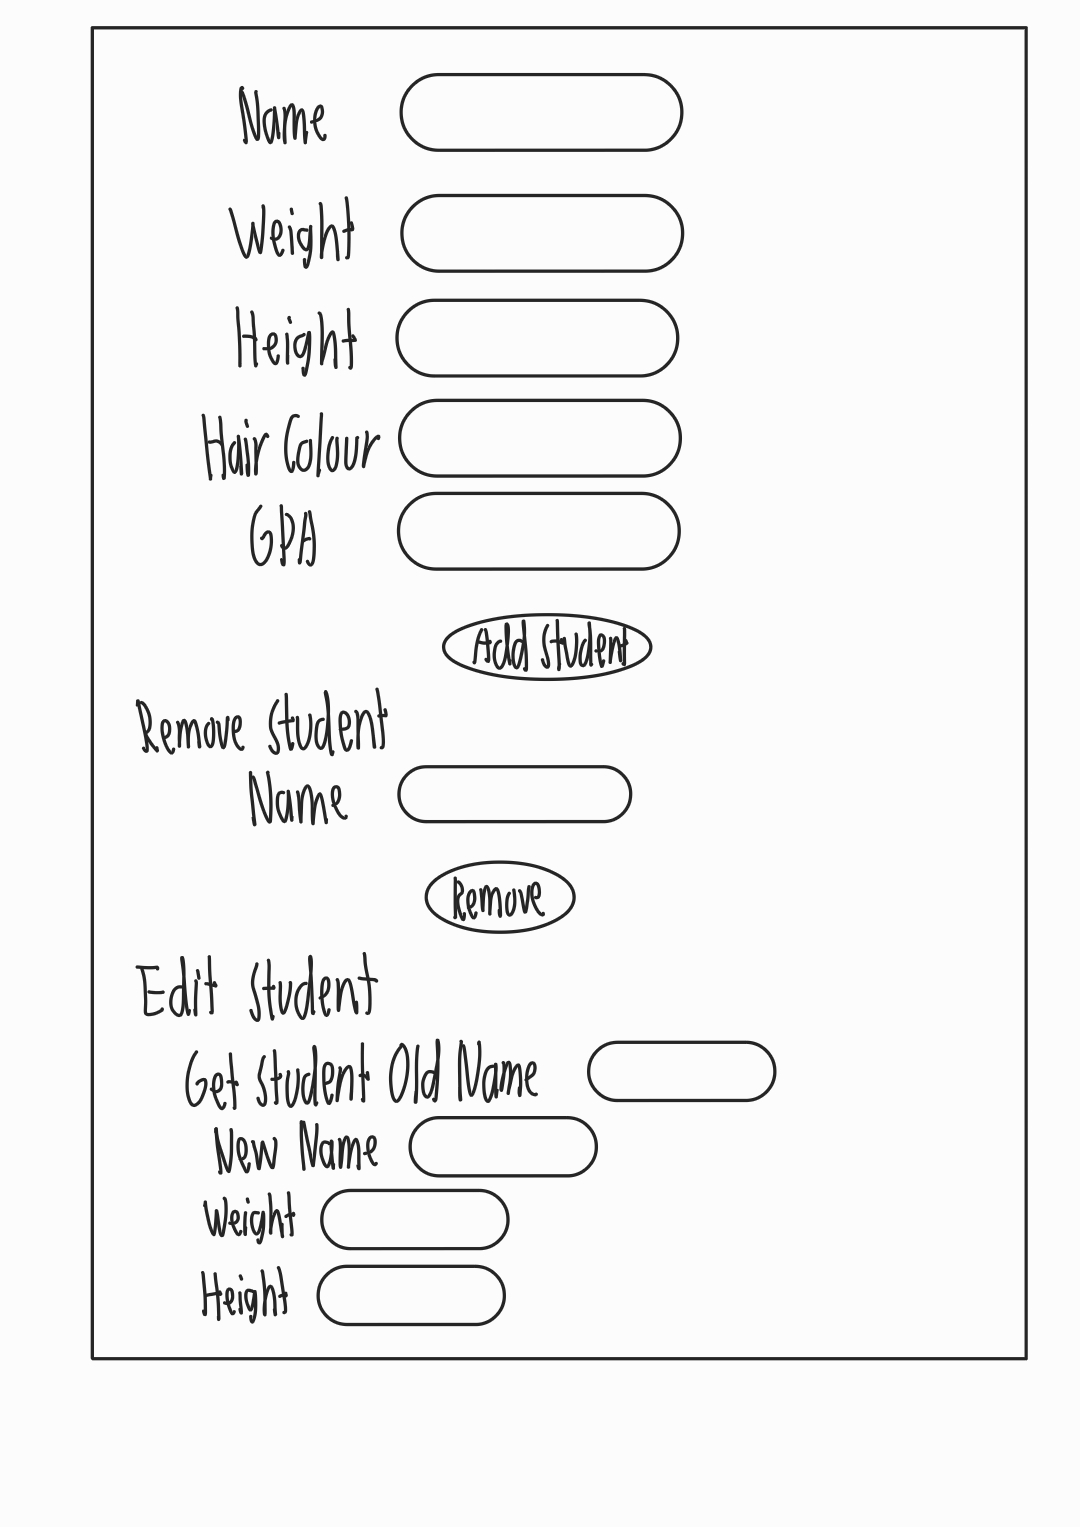 Name
Weight
Height
Hair Colour
GPA
Add Student
Remove Student
Name
Remove
Edit Student
Get Student Old Name
New Name
Weight
Height